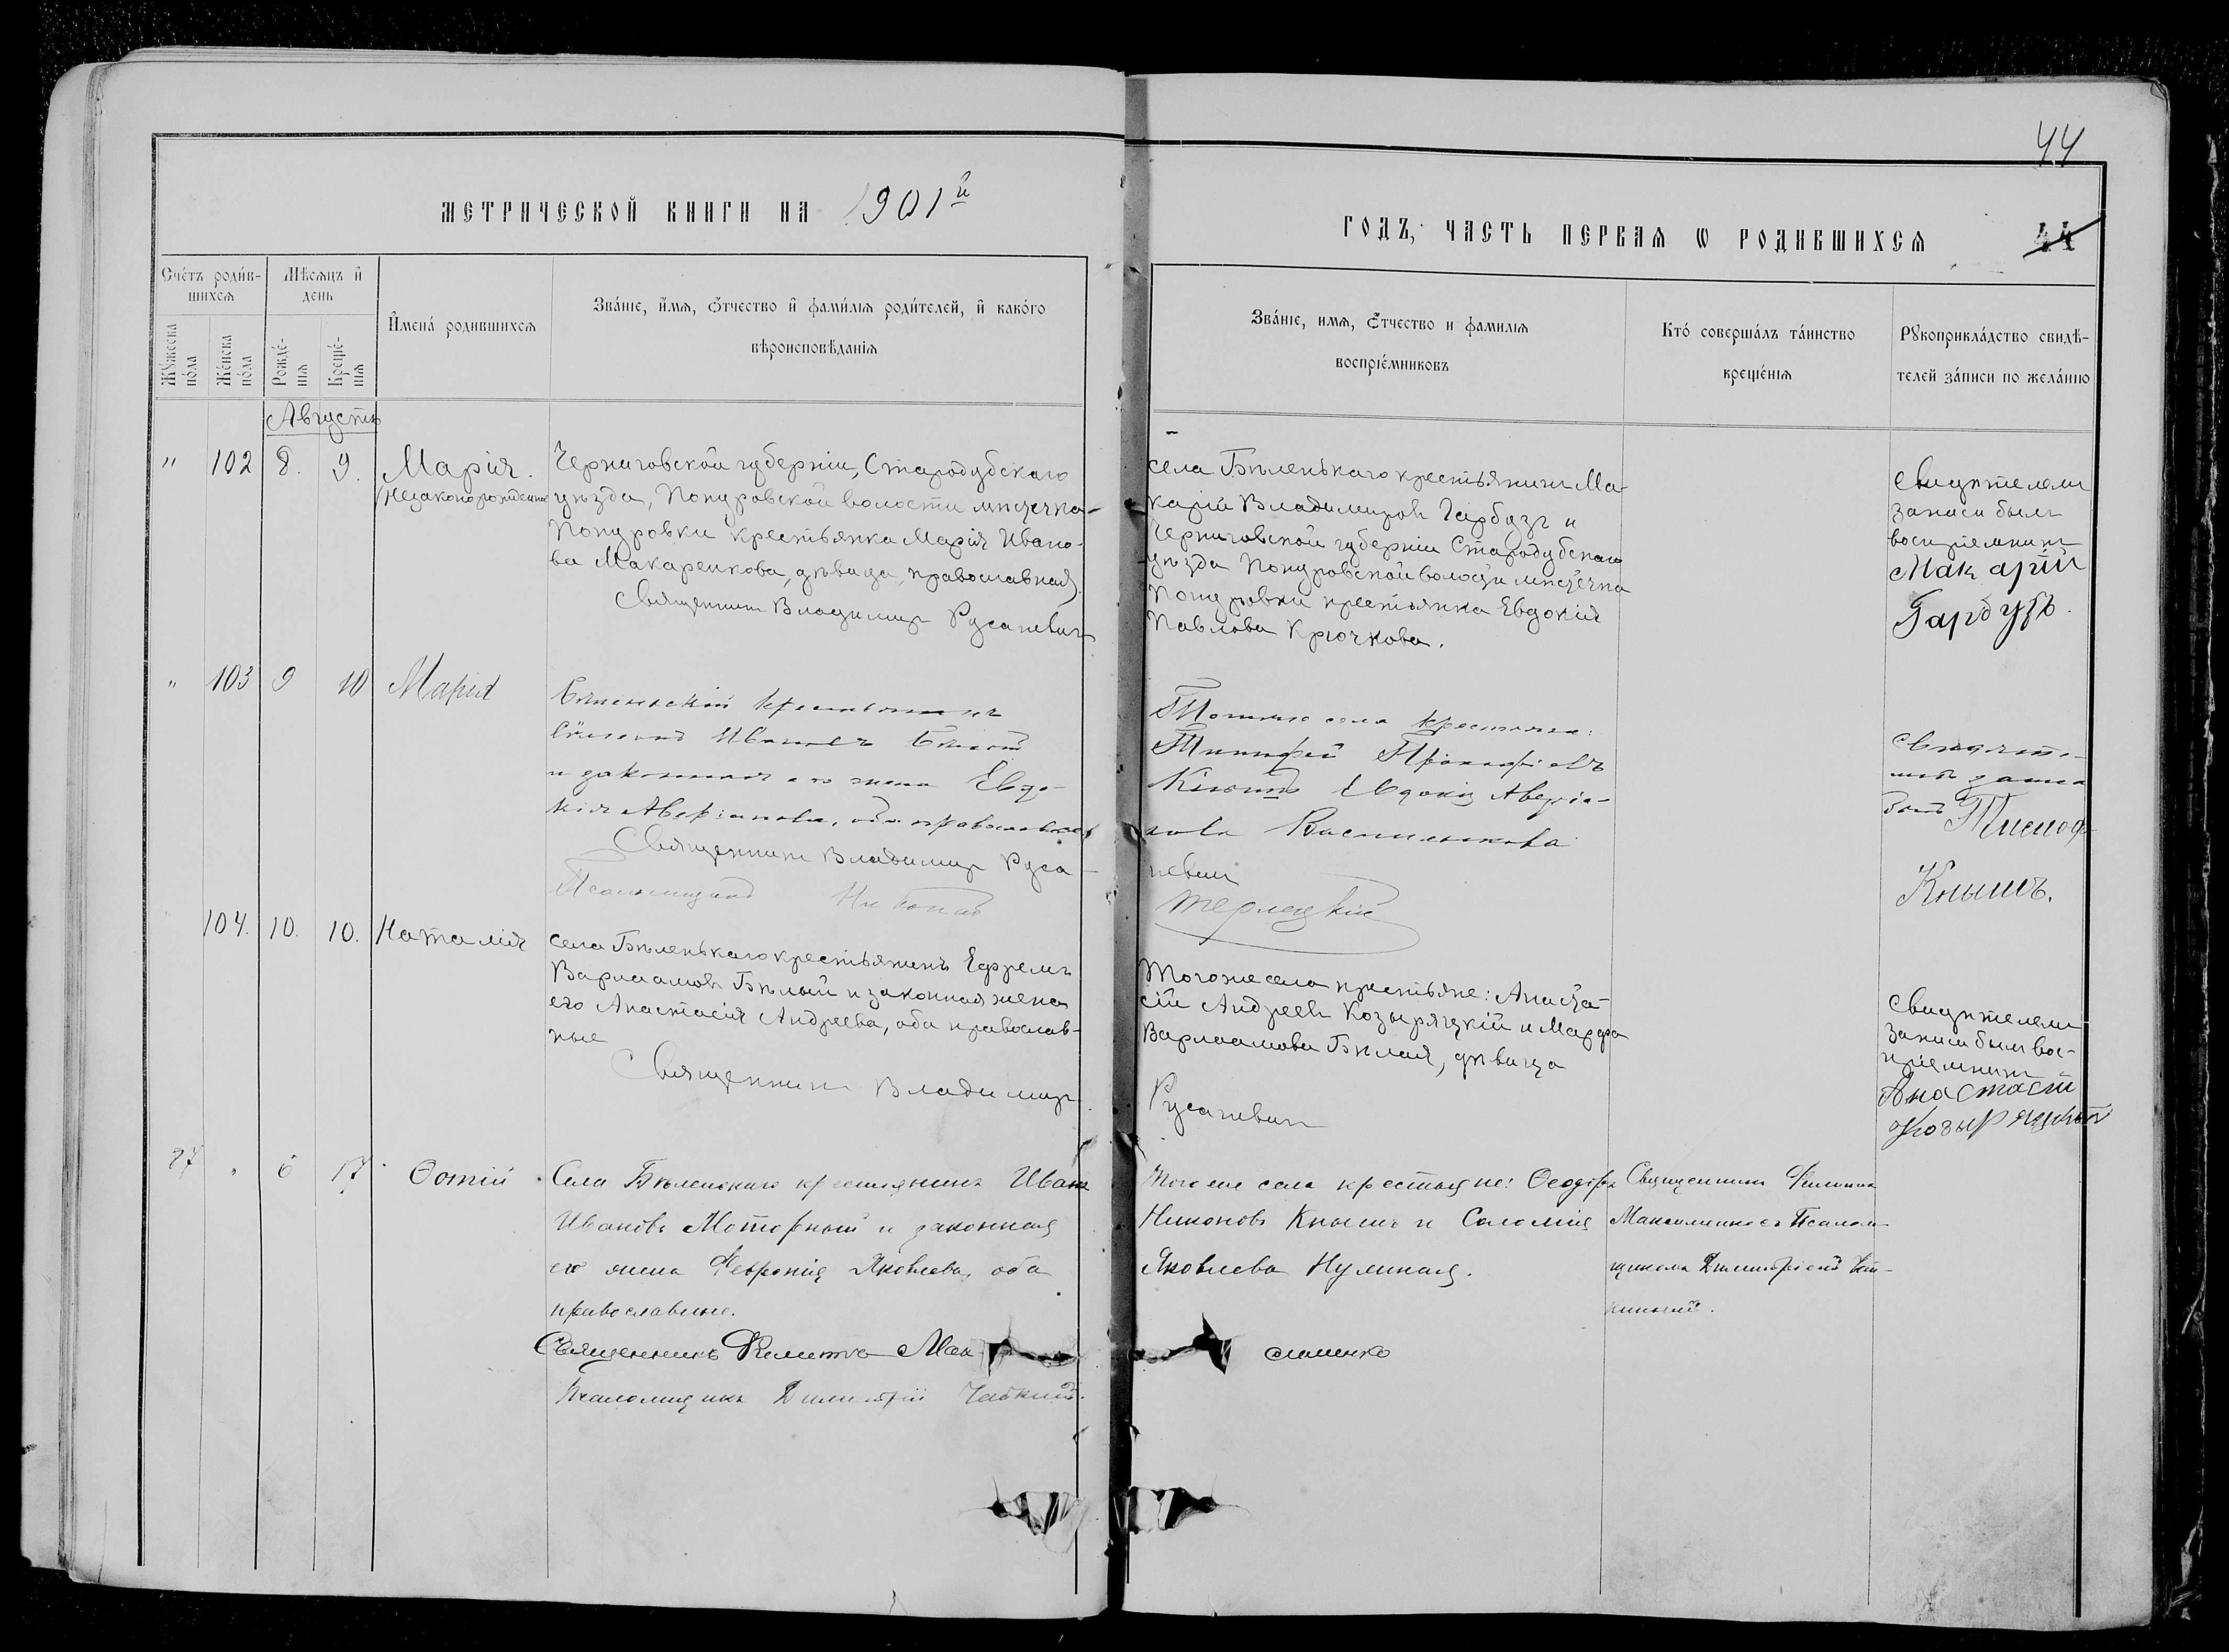 44
МЕТРИЧЕСКОЙ КНИГИ НА 1901й
ГОДЪ, ЧАСТЬ ПЕРВАЯ Ѡ РОДИВШИХСЯ
44
Счетъ родив-
шихся
Мѣсяцъ и
день
Мужеска
пола
Женска
пола
Рожде-
нія
Креще-
нія
Имена родившихся
Званіе, имя, отчество и фамилія родителей, и какого
вѣроисповѣданія
Званіе, имя, отчество и фамилія
воспріемниковъ
Кто совершалъ таинство
крещенія
Рукоприкладство свидѣ-
телей записи по желанію
Августъ
" 102 8. 9. Марія.
(незаконорожденная
Черниговской губерніи, Стародубскаго
уѣзда, Понуровской волости мѣстечка
Понуровки крестьянка Марія Ивано-
ва Макаренкова, дѣвица, православная.
Священникъ Владимиръ Русаневичъ
села Бѣленькаго крестьянинъ Ма-
карій Владимировъ Гарбузъ и
Черниговской губерніи Стародубскаго
уѣзда Понуровской волости мѣстечка
Понуровки крестьянка Евдокія
Павлова Крючкова.
Свидѣтелемъ
записи былъ
воспріемникъ
Макарій
Гарбузъ.
" 103 9 10 Марія
Бѣленьскій крестьянинъ
Ивановъ
и законная его жена Евдо-
кія Аверіанова, оба православные
Священникъ Владимиръ Руса-
Псаломщикъ
Того же села крестьяне:
Тимофей Прокофіевъ
Кнышъ Евдокія Аверіа-
нова Василенкова
невичъ
Терлецкій
Свидѣте-
лемъ записи
былъ
Кнышъ.
104. 10. 10. Наталія
села Бѣленькаго крестьянинъ Ефремъ
Варлаамовъ Бѣлый и законная жена
его Анастасія Андреева, оба православ-
ные
Священникъ Владимиръ
Тогоже села крестьяне: Анаста-
сій Андреевъ Козыряцкій и Марфа
Варлаамова Бѣлая, дѣвица
Русаневичъ
Свидѣтелемъ
записи былъ вос-
пріемникъ
Анастасій
Козыряцкій
97 " 6 17 Ѳотій
Села Бѣленькаго крестьянинъ Иванъ
Ивановъ Моторный и законная
его жена Февронія Яковлева, оба
православные.
Священникъ Филиппъ Мак
Псаломщикъ Димитрій
Того же села крестьяне: Ѳеодоръ
Никоновъ Кнышъ и Саломія
Яковлева Нулиная.
сименко
Священникъ Филиппъ
Максименко съ Псалом-
щикомъ Димитріемъ